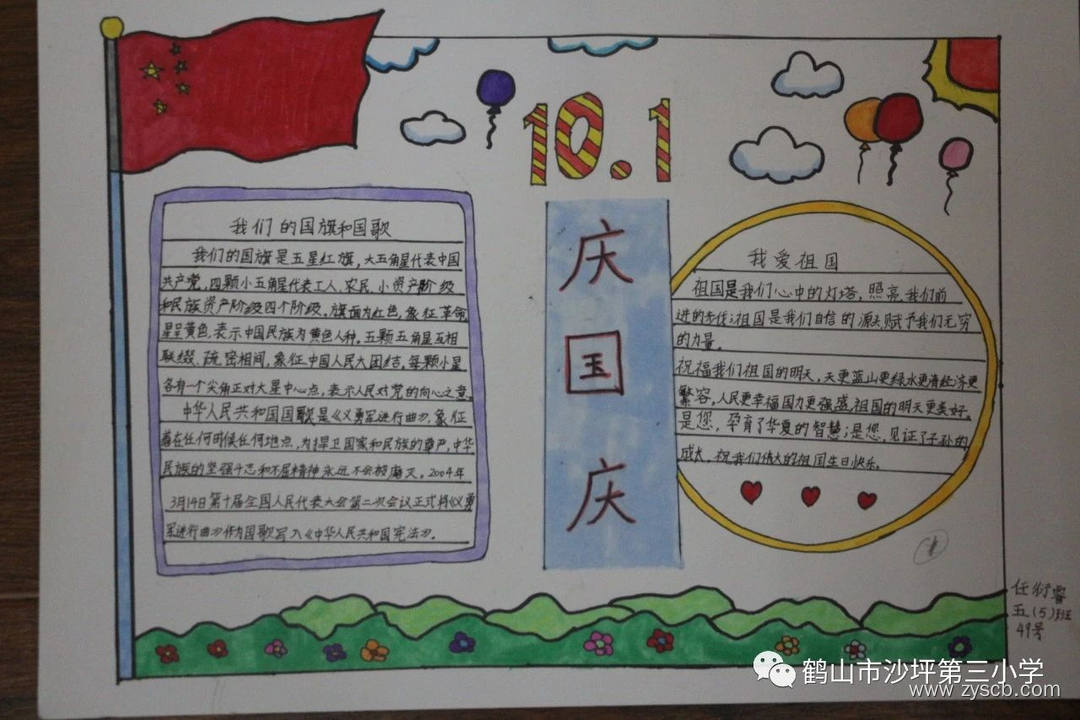 10.1
庆
国
庆
我们的国旗和国歌
我们的国旗是五星红旗,大五角星代表中国
共产党,四颗小五角星代表工人、农民、小资产阶级
和民族资产阶级四个阶级,旗面为红色,象征革命,
星呈黄色,表示中国民族为黄色人种,五颗五角星互相
联缀、疏密相间,象征中国人民大团结,每颗小星
各有一个尖角正对大星中心点,表示人民对党的向心之意。
中华人民共和国国歌是《义勇军进行曲》,象征
着在任何时候任何地点,为捍卫国家和民族的尊严,中华
民族的坚强斗志和不屈精神永远不会被磨灭。2004年
3月14日第十届全国人民代表大会第二次会议正式将《义勇
军进行曲》作为国歌写入《中华人民共和国宪法》。
我爱祖国
祖国是我们心中的灯塔,照亮我们前
进的方位;祖国是我们自信的源头,赋予我们无穷
的力量。
祝福我们祖国的明天,天更蓝山更绿水更清经济更
繁容,人民更幸福国力更强盛,祖国的明天更美好。
是您,孕育了华夏的智慧;是您,见证了子孙的
成长,祝我们伟大的祖国生日快乐。
五(5)班
49号
鹤山市沙坪第三小学
www.zyscb.com